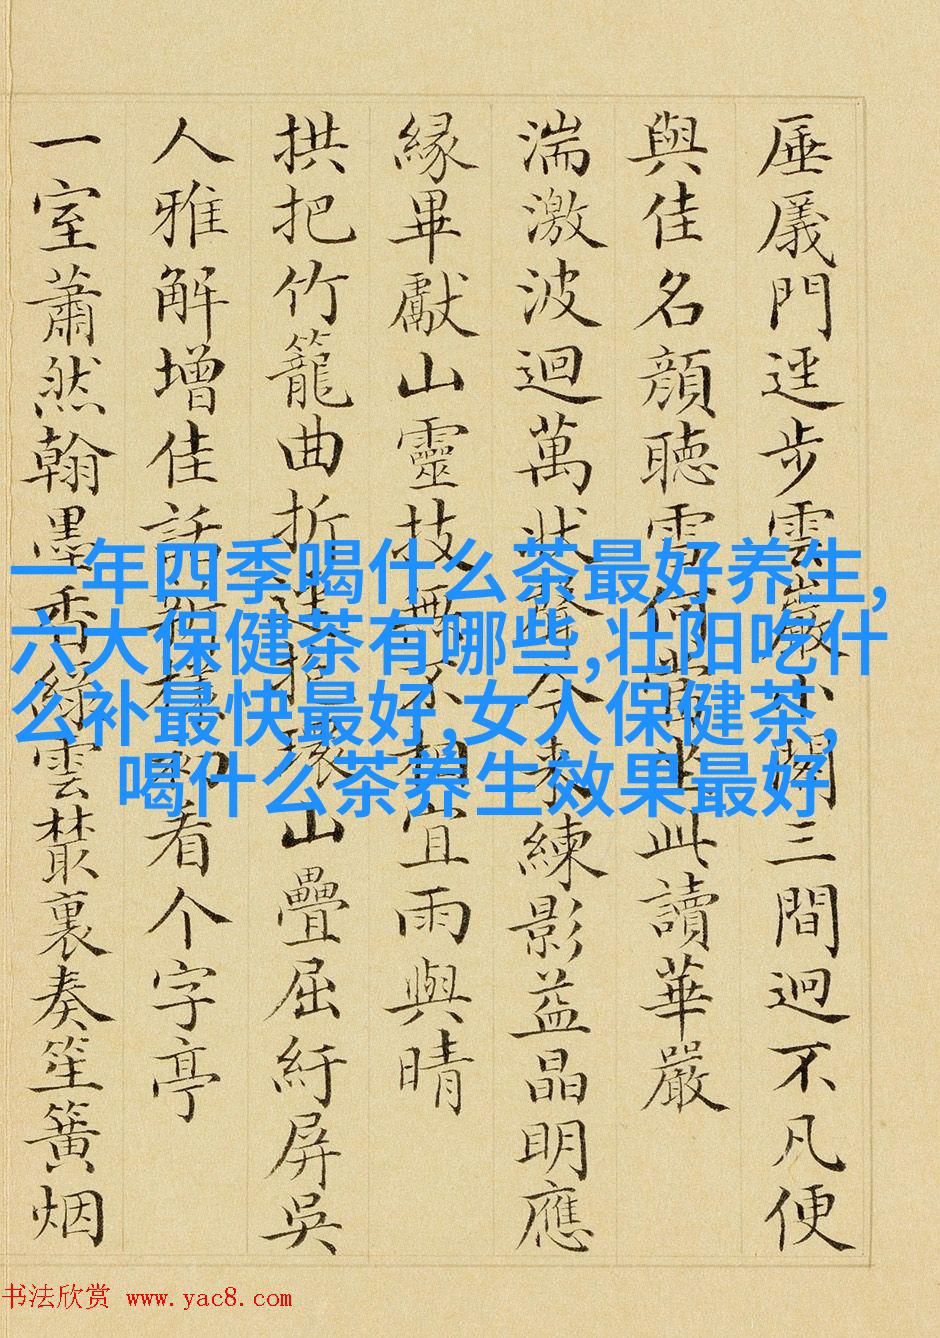 厓㕒門逕步雲巖小閣三間迥不凡便
與佳名顔聽雪何當坐此讀華嚴
湍激波迴萬狀今來練影益晶明應
緣畢獻山靈技無不相宜雨與晴
拱把竹籠曲折迷循環山疊屈紆屏吳
人雅解增佳話看个字亭
一室蕭然翰墨香綠雲叢裏奏笙簧烟
一年四季喝什么茶最好养生,
六大保健茶有哪些,壮阳吃什
么补最快最好,女人保健茶,
喝什么茶养生效果最好
书法欣赏 www.yac8.com